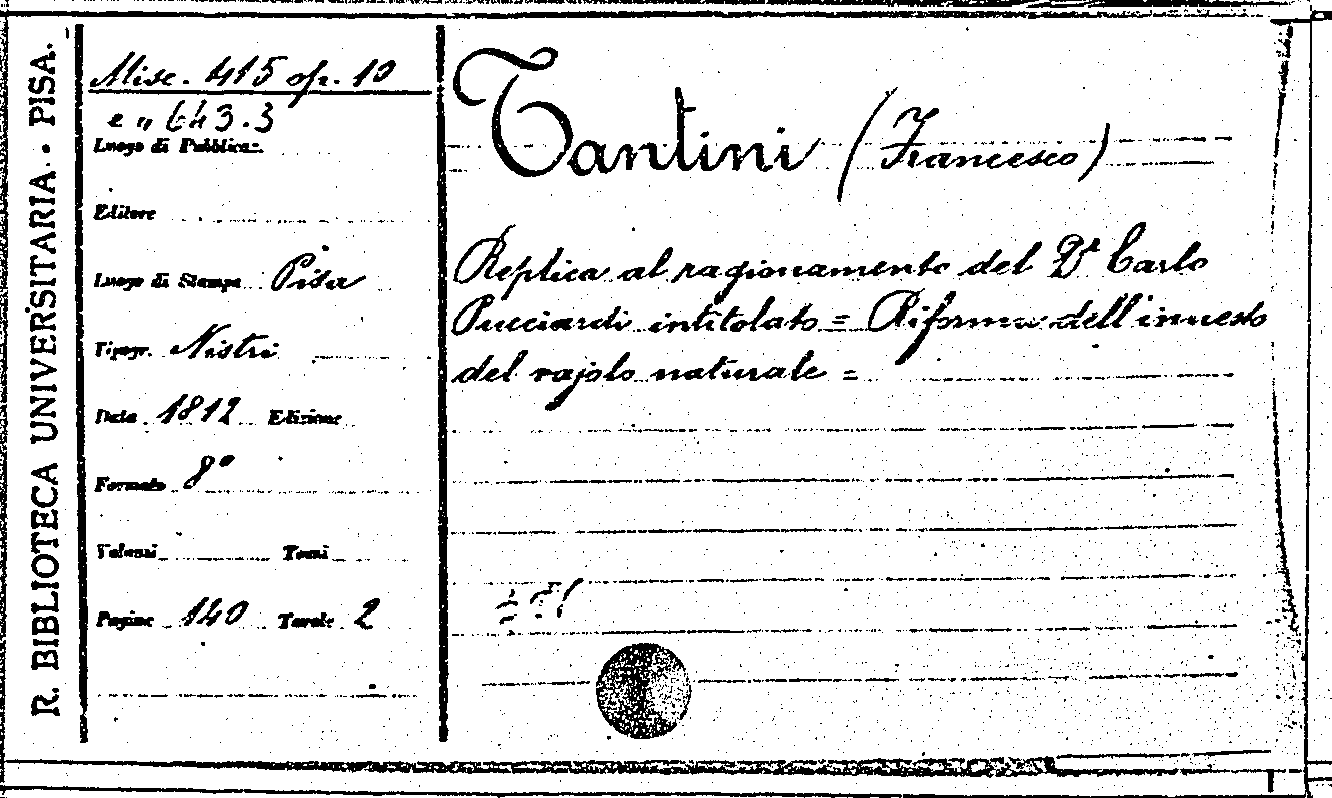 R. BIBLIOTECA UNIVERSITARIA. - PISA.
Misc. 415 op. 10
e „ 643.3
Luogo di Pubblicaz.
Editore
Luogo di Stampa Pisa
Tipogr. Nistri
Data 1812 Edizione
Formato 8°
Volumi Tomi
Pagine 140 Tavole 2
Tantini (Francesco)
Replica al ragionamento del Dr Carlo
Pucciardi intitolato = Riforma dell'innesto
del vajolo naturale =